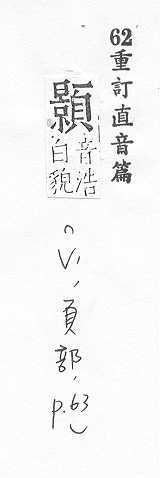 62重訂直音篇
顥
音浩
白貌
(V1、頁部、p.63)